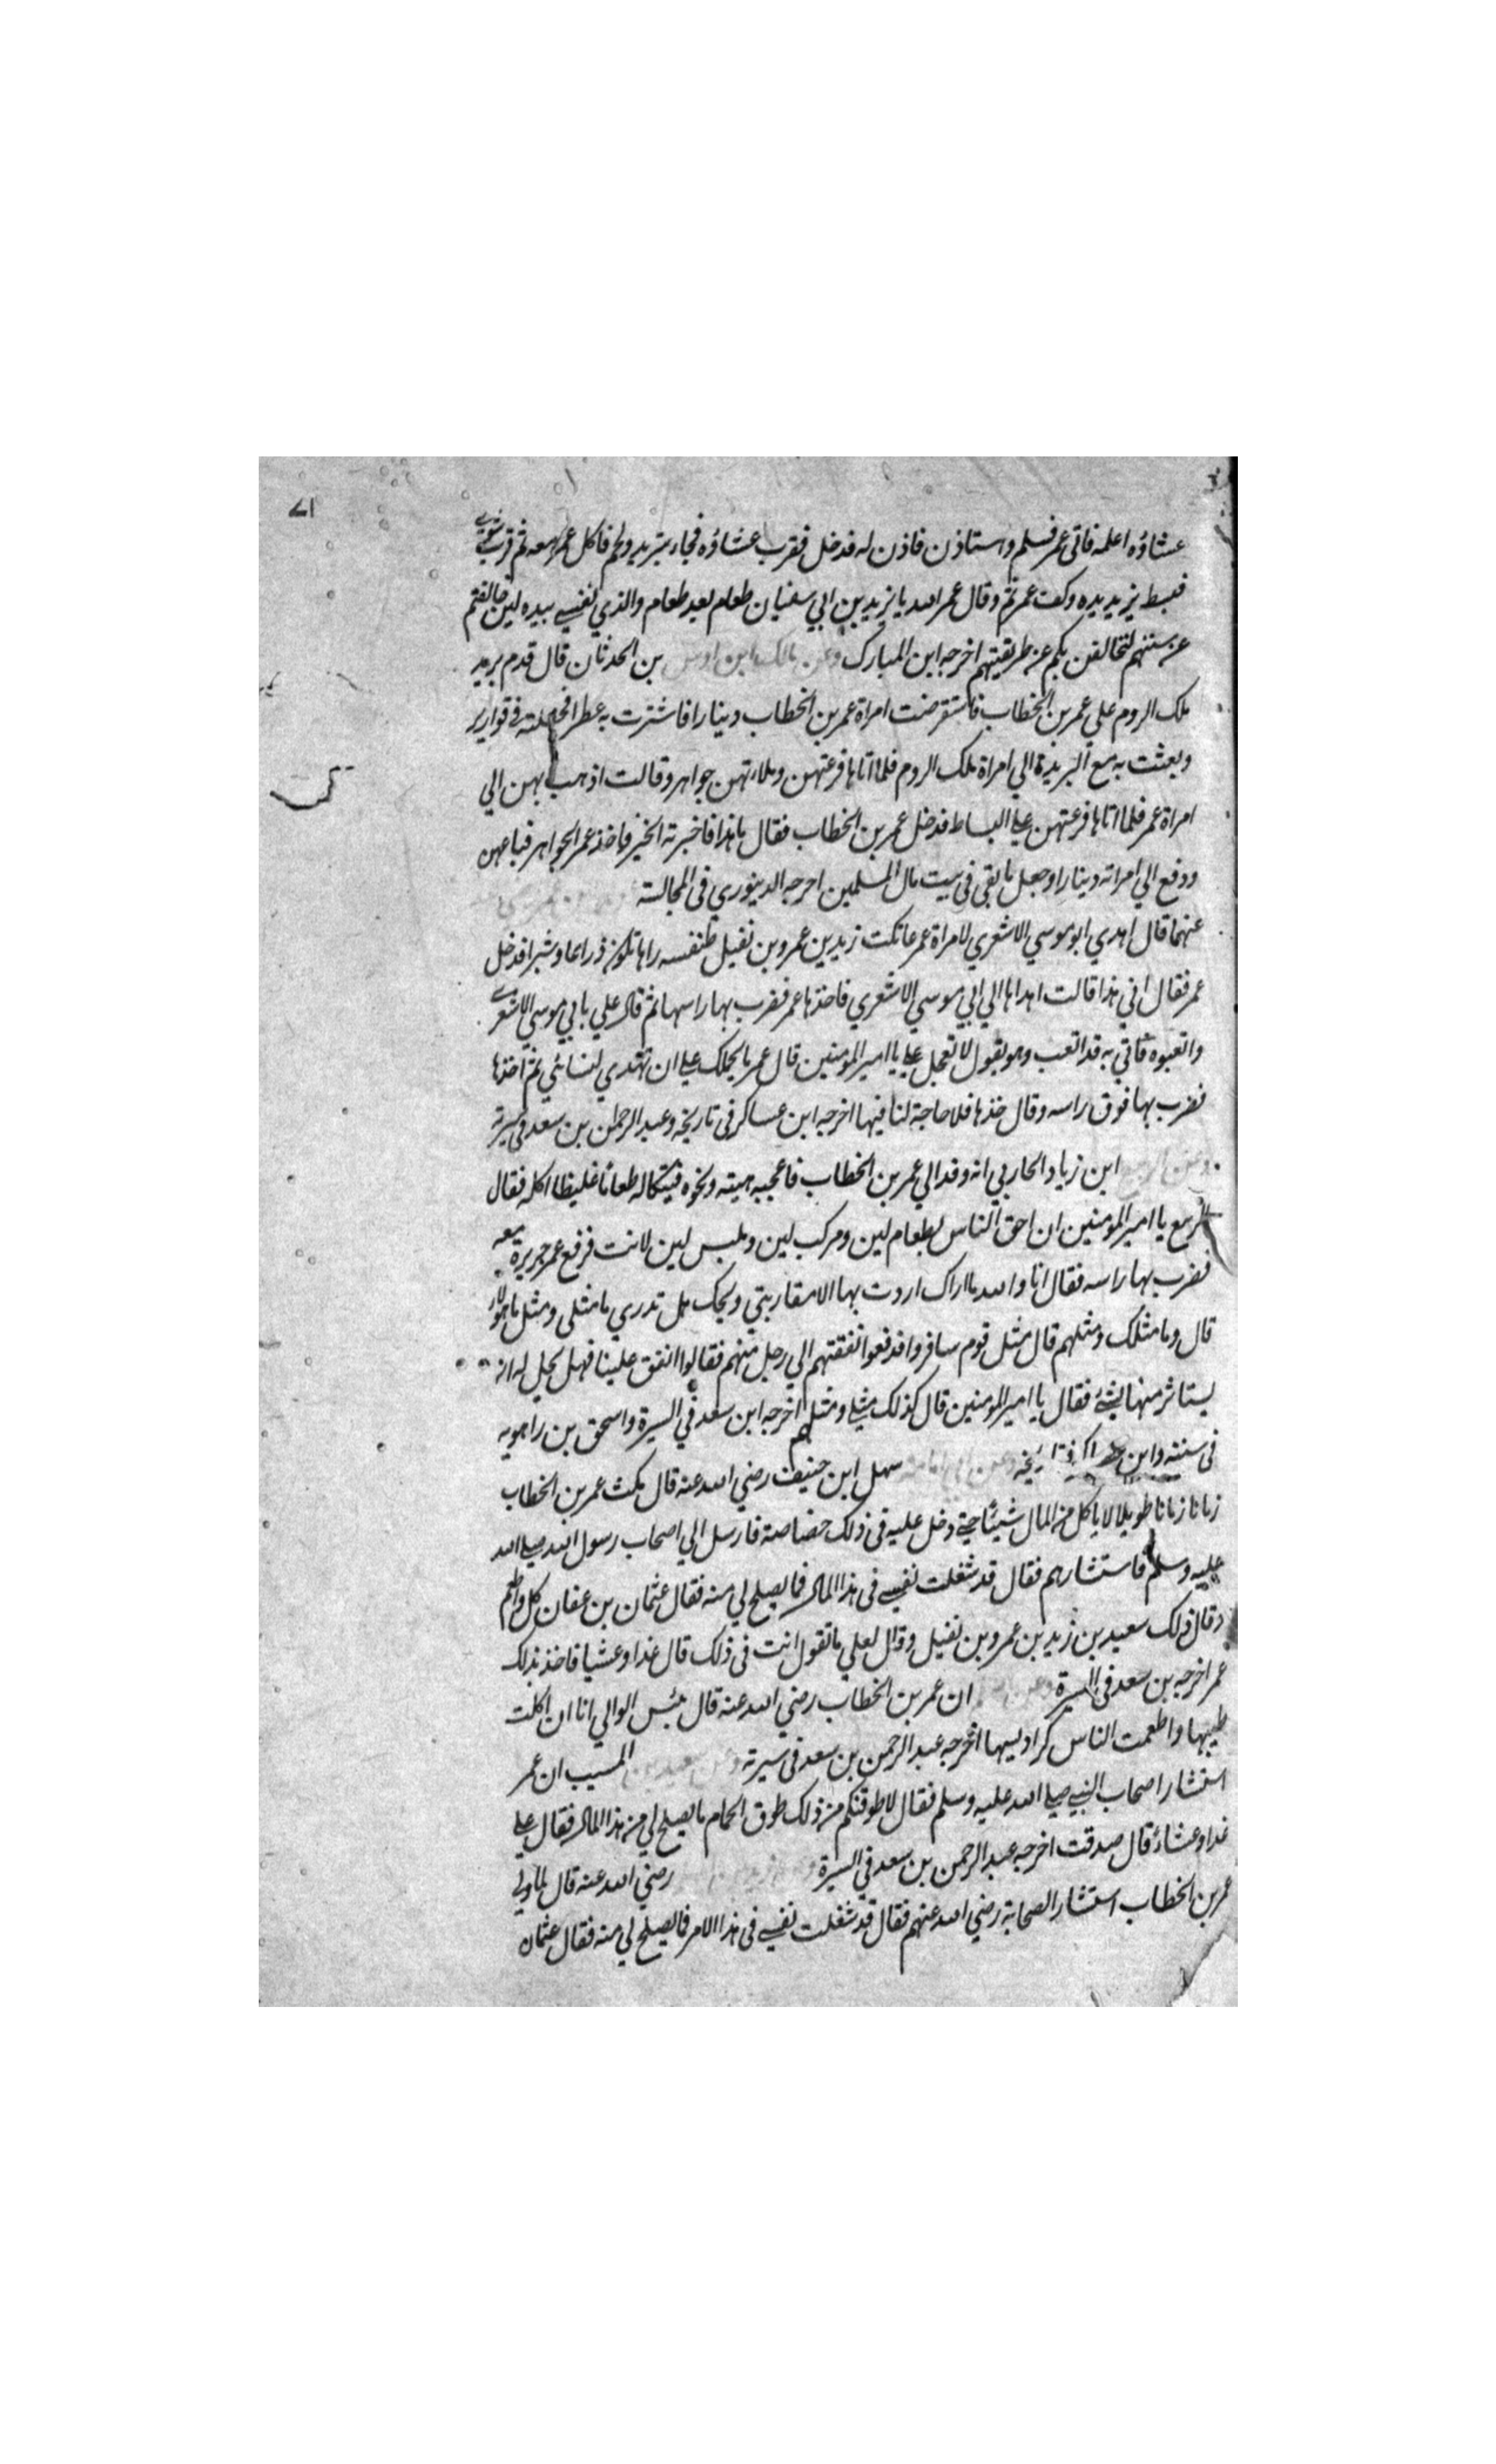 ٧١
عشاؤه اعلمه فاتى عمر فسلم واستاذن فاذن له فدخل فقرب عشاؤه فجاء بثريد ولحم فاكل عمر معه ثم قرب شوى
فبسط يزيد يده وكف عمر ثم وقال عمر الله يا يزيد بن ابي سفيان طعام بعد طعام والذي نفسي بيده لين خالفتم
عن سنتهم لتخالفن بكم عن طريقتهم اخرجه ابن المبارك وعن مالك ابن اوس بن الحدثان قال قدم بريد
ملك الروم علي عمر بن الخطاب فاستقرضت امراة عمر بن الخطاب دينارا فاشترت به عطرا فجعلته في قوارير
وبعثت به مع البريد الي امراة ملك الروم فلما اتاها فرغتهن وملاءتهن جواهر وقالت اذهب بهن الي
امراة عمر فلما اتاها فرغتهن علي البساط فدخل عمر بن الخطاب فقال ما هذا فاخبرته الخبر فاخذ عمر الجواهر فباعهن
ودفع الي امراته دينارا وجعل ما بقى في بيت مال المسلمين اخرجه الدينوري في المجالسة
عنهما قال اهدي ابو موسي الاشعري لامراة عمر عاتكت زيد بن عمرو بن نفيل طنفسه راها تكون ذراعا وشبرا فدخل
عمر فقال اني هذا قالت اهداها الي ابي موسي الاشعري فاخذها عمر فضرب بها راسها ثم قال علي بابي موسي الاشعري
واتعبوه فاتي به قد اتعب وهو يقول لا تعجل علي يا امير المومنين قال عمر ما يحملك علي ان تهدي لنسائي ثم اخذها
فضرب بها فوق راسه وقال خذها فلا حاجة لنا فيها اخرجه ابن عساكر في تاريخه وعبد الرحمن بن سعد في سيرته
وعن الربيع ابن زياد الحاربي انه وفد الي عمر بن الخطاب فاعجبه هيته ونحوه فشكا له طعامًا غليظا اكله فقال
الربيع يا امير المومنين ان احق الناس بطعام لين ومركب لين وملبس لين لانت فرفع عمر جريرة معه
فضرب بها راسه فقال انا والله ما اراك اردت بها الا مقاربتي ويحك هل تدري ما مثلى ومثل ما هؤلاء
قال وما مثلك ومثلهم قال مثل قوم سافروا فدفعوا نفقتهم الي رجل منهم فقالوا انفق علينا فهل يحل له ان
يستاثر منها بشئ فقال يا امير المومنين قال كذلك مثلي ومثلهم اخرجه ابن سعد في السيرة واسحق بن راهويه
في سنته وابن عساكر في تاريخه وعن ابي امامة سهل ابن حنيف رضي الله عنه قال مكث عمر بن الخطاب
زمانا زمانا طويلا لا ياكل من المال شيئا حتي دخل عليه في ذلك خصاصة فارسل الي اصحاب رسول الله صلي الله
عليه وسلم فاستشارهم فقال قد شغلت نفسي في هذا المال فما يصلح لي منه فقال عثمان بن عفان كل واطعم
وقال ذلك سعيد بن زيد بن عمرو بن نفيل وقال لعلي ما تقول انت في ذلك قال غدا وعشيا فاخذ بذلك
عمر اخرجه بن سعد في السيرة ان عمر بن الخطاب رضي الله عنه قال بئس الوالي انا ان اكلت
طيبها واطعمت الناس كراديسها اخرجه عبد الرحمن بن سعد في سيرته وعن سعيد بن المسيب ان عمر
استشار اصحاب النبي صلي الله عليه وسلم فقال لاطوقنكم من ذلك طوق الحمام ما يصلح لي من هذا المال فقال علي
غدا وعشاء قال صدقت اخرجه عبد الرحمن بن سعد في السيرة رضي الله عنه قال لما ولي
عمر بن الخطاب استشار الصحابة رضي الله عنهم فقال قد شغلت نفسي في هذا الامر فما يصلح لي منه فقال عثمان